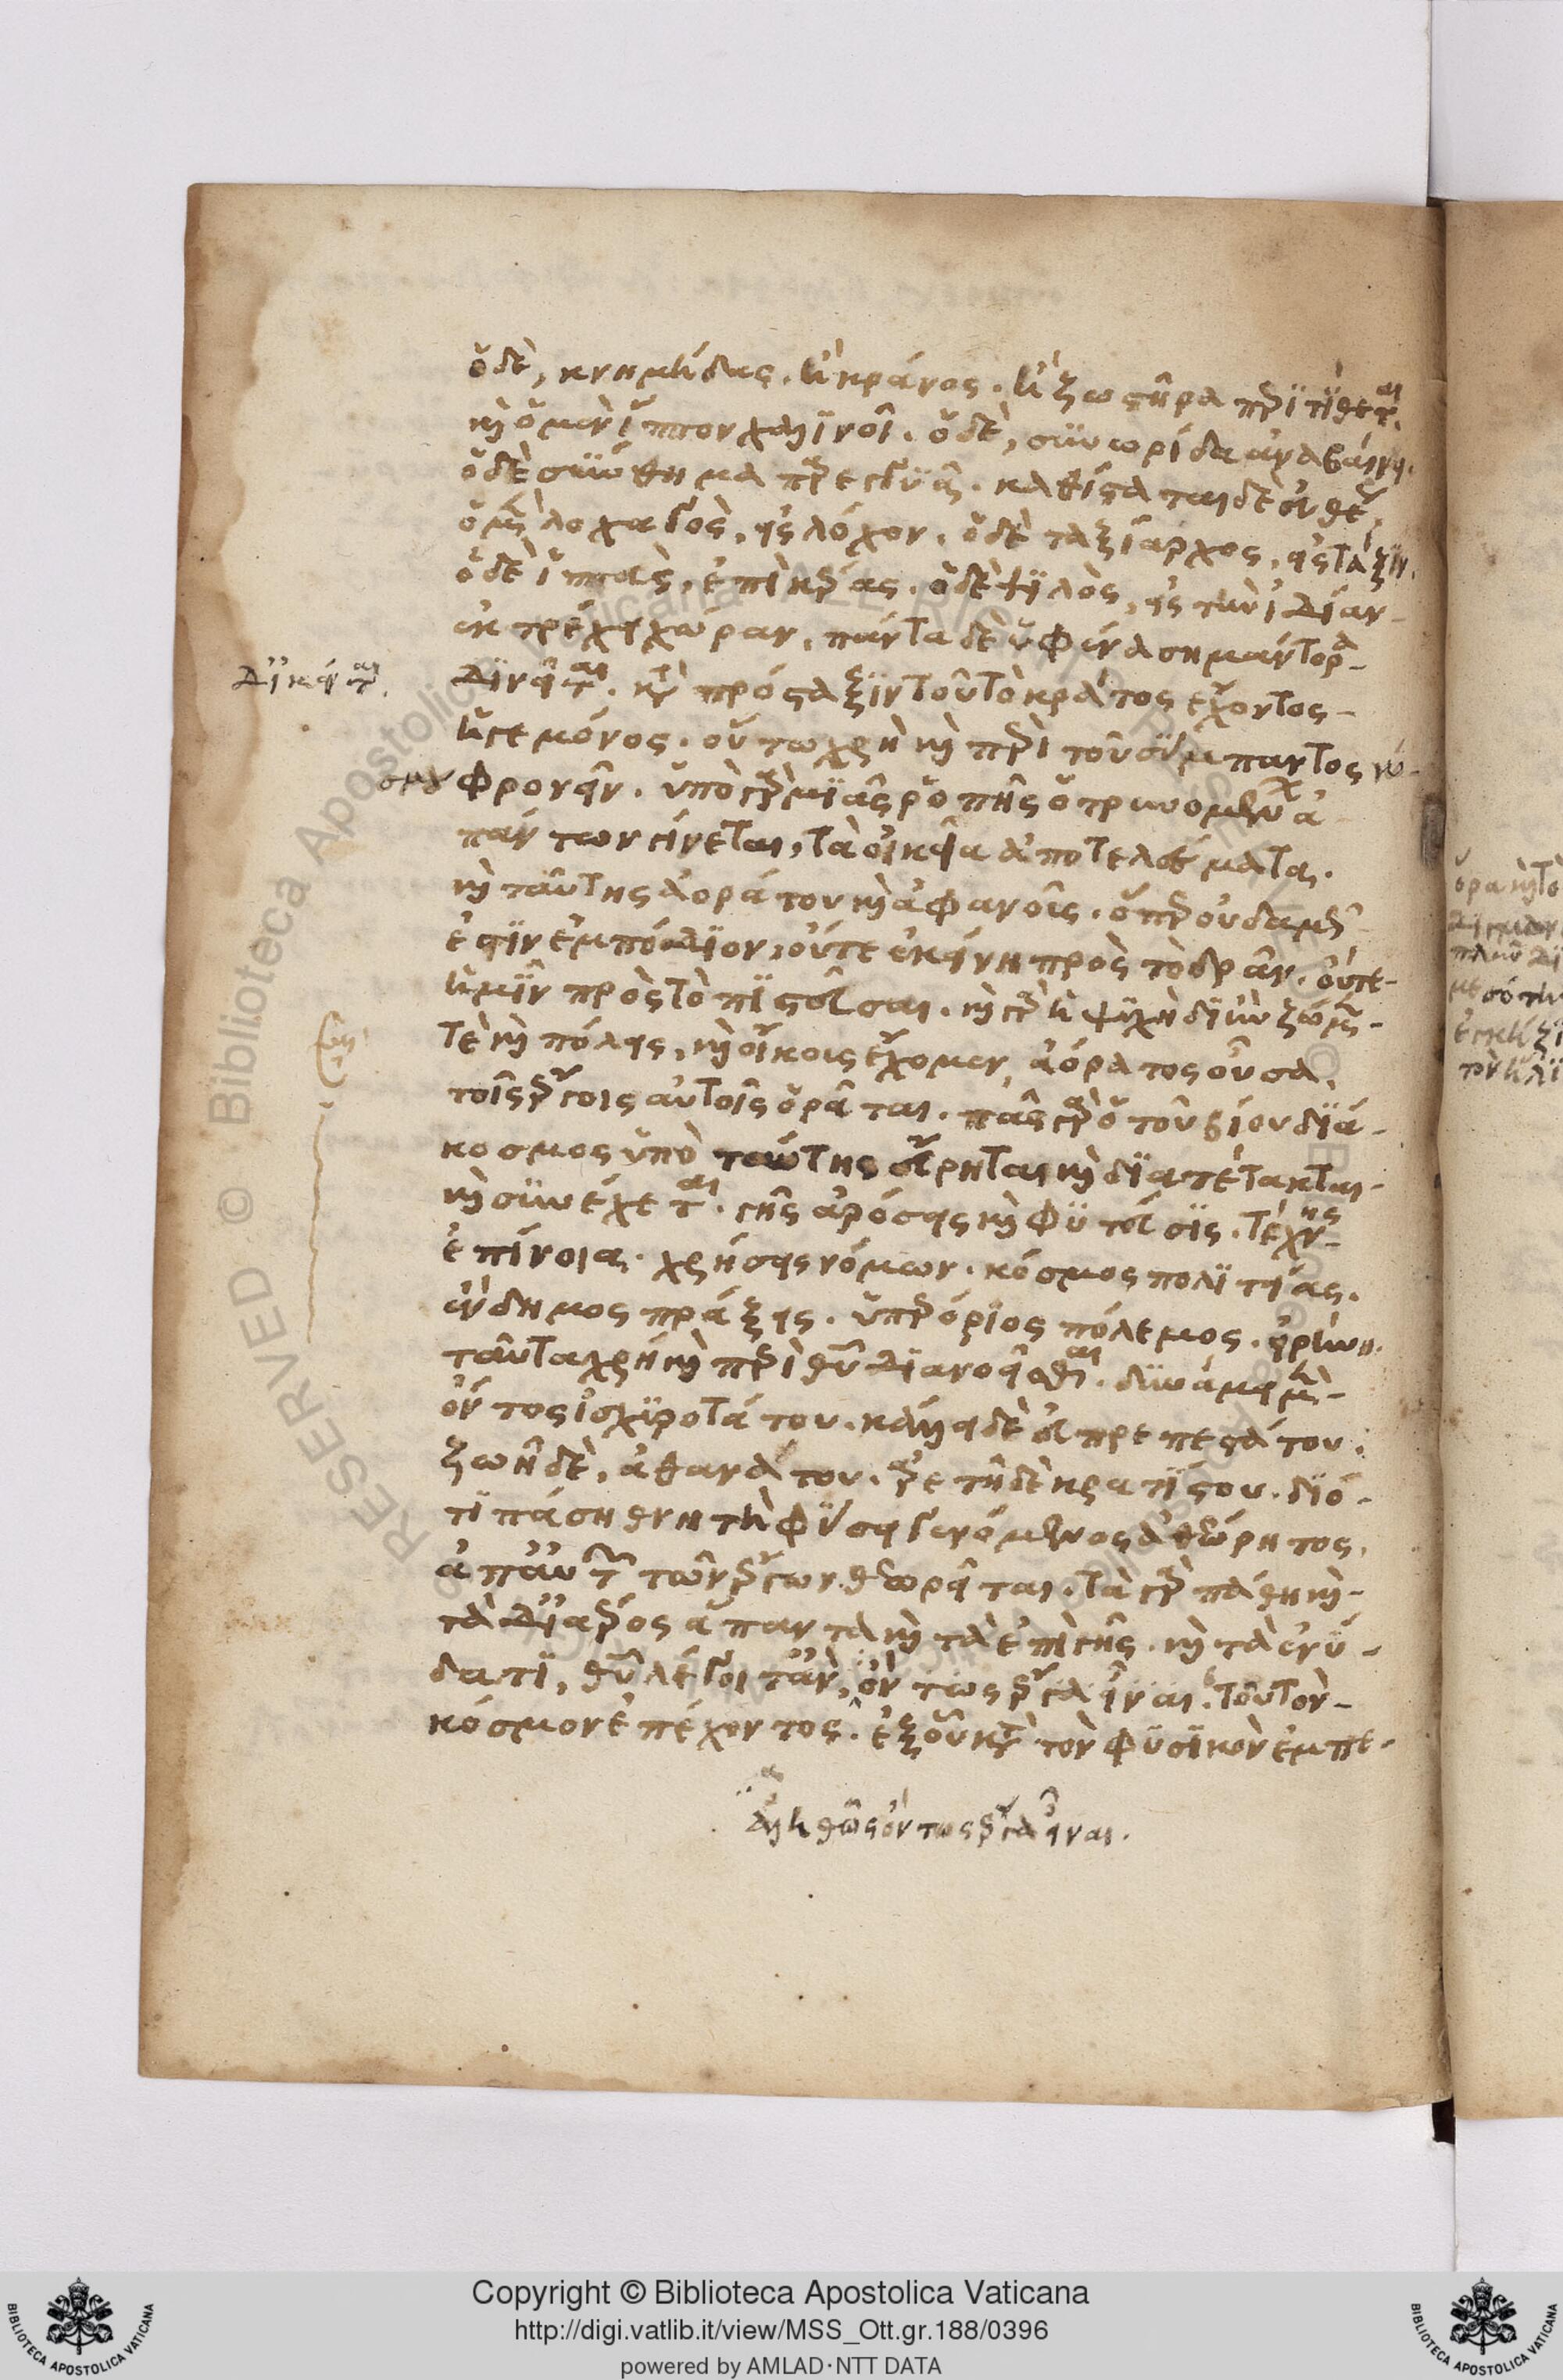 ὁ δὲ, κνημίδας. ἢ κράνος. ἢ ζωστῆρα περιτίθεται.
καὶ ὁ μὲν ἵππον χαλινοῖ. ὁ δὲ, συνωρίδα ἀναβαίνει.
ὁ δὲ σύνθημα παρεγγυᾷ. καθίσταται δὲ εὐθέως
ὁ μὲν λοχαγὸς, εἰς λόχον. ὁ δὲ ταξίαρχος, εἰς τάξιν.
ὁ δὲ ἱππεὺς, ἐπὶ κέρας. ὁ δὲ ψιλὸς, εἰς τὴν ἰδίαν
ἐκτρέχει χώραν, πάντα δὲ ὑφ' ἕνα σημάντορα
δινεῖται. κατὰ πρόσταξιν τοῦ τὸ κράτος ἔχοντος
διοικεῖται.
ἡγεμόνος. οὕτω χρὴ καὶ περὶ τοῦ σύμπαντος
φρονεῖν. ὑπὸ γὰρ μιᾶς ῥοπῆς ὀτρυνομένων ἁ
πάντων γίνεται, τὰ οἰκεῖα ἀποτελούματα.
καὶ ταύτης ἀοράτου καὶ ἀφανοῖς. ὅπερ οὐδαμῶς
ἐστὶν ἐμπόδιον, οὔτε ἐκείνῃ πρὸς τὸ δρᾶν. οὔτε
ἡμῖν πρὸς τὸ πιστεῦσαι. καὶ γὰρ ἡ ψυχὴ δι' ἣν ζῶμεν
τὲ καὶ πόλεις, καὶ οἴκοις ἔχομεν, ἀόρατος οὖσα,
τοῖς ἔργοις αὐτοῖς ὁρᾶται. πᾶς γὰρ ὁ τοῦ βίου διά
κοσμος ὑπὸ ταύτης εὕρηται καὶ διατέτακται
καὶ συνέχεται. γῆς ἀρόσεις καὶ φυτεύσις. τέχνης
ἐπίνοια. χρήσεις νόμων. κόσμος πολιτείας.
ἔνδημος πράξεις. ὑπερόριος πόλεμος. εἰρήνη.
ταῦτα χρὴ καὶ περὶ θεοῦ διανοεῖσθαι. δυνάμει μὲν
ὄντος ἰσχυροτάτου. κάλλει δὲ εὐπρεπεστάτου.
ζωῆ δὲ, ἀθανάτου. ἀρετῆ δὲ κρατίστου. διό
τι πάσῃ θνητῇ φύσει γενόμενος ἀθεώρητος,
ἀπ' αὐτῶν τῶν ἔργων θεωρεῖται. τὰ γὰρ πάθη καὶ
τὰ δι' ἀέρος ἅπαντα καὶ τὰ ἐπὶ γῆς. καὶ τὰ ἐν ὕ
δατι, θεοῦ λέγοιτ' ἂν, ὄντως ἔργα εἶναι. τοῦ τὸν
κόσμον ἐπέχοντος. ἐξ οὗ κατὰ τὸν φυσικὸν ἐμπε
ἀληθῶς ὄντως ἔργα εἶναι.
Copyright © Biblioteca Apostolica Vaticana
http://digi.vatlib.it/view/MSS_Ott.gr.188/0396
powered by AMLAD·NTT DATA